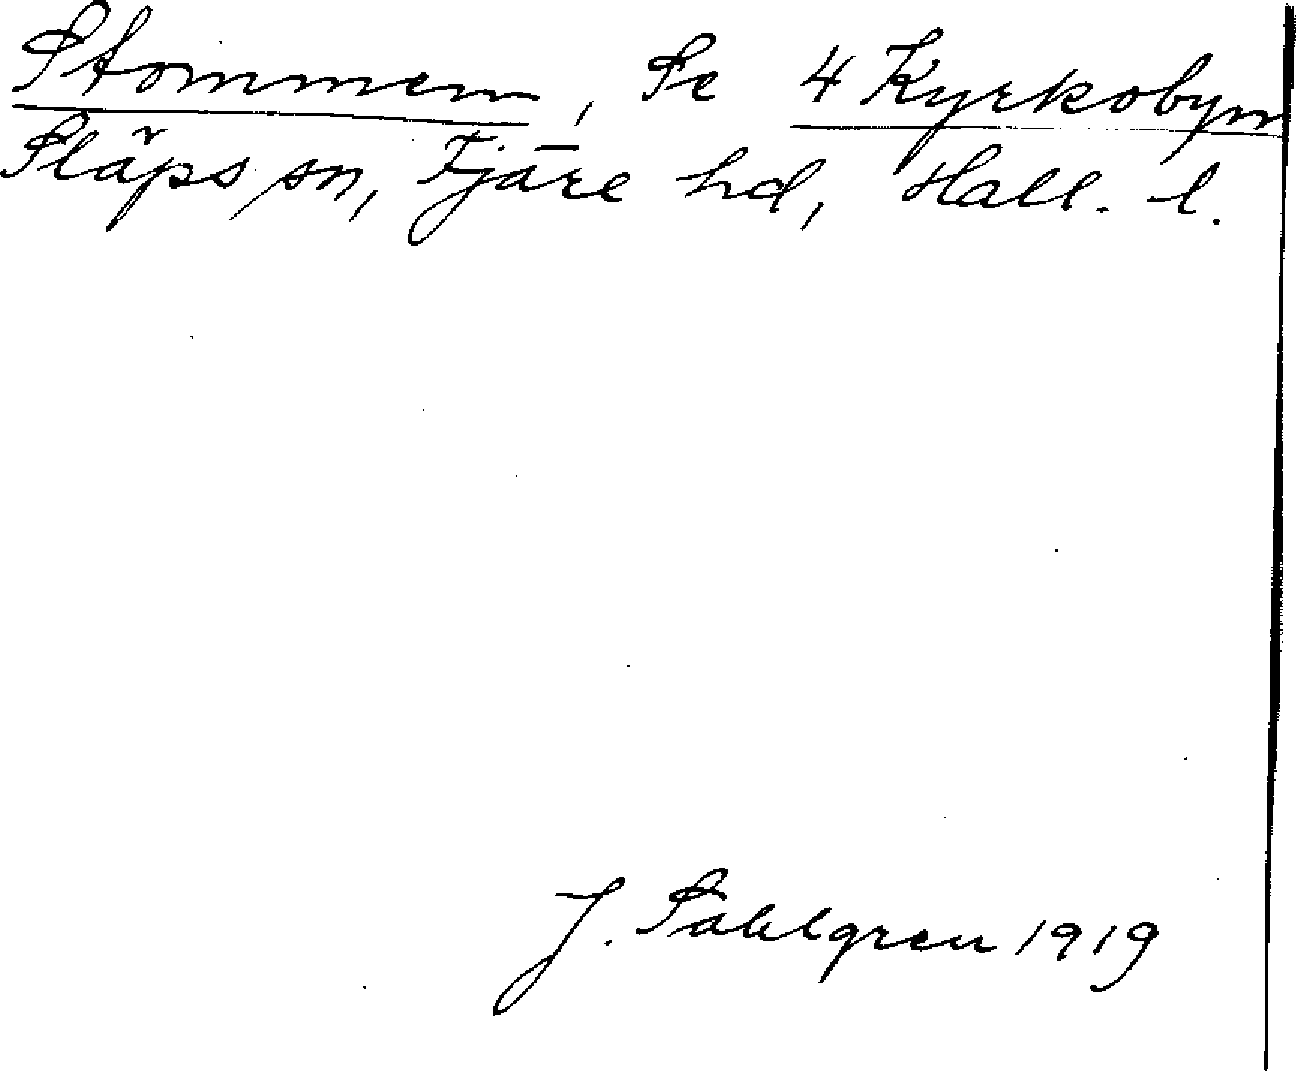 Stommen, Se 4 Kyrkobyn
Släps sn, Fjäre hd, Hall. l.
J. Sahlgren 1919